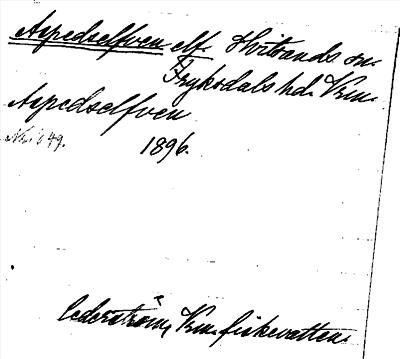 Aspedselfven elf. Hvitsands sn.
Fryksdals hd. Vrm.
Aspedselfven
1896.
Cederström, Vrm. fiskevatten.